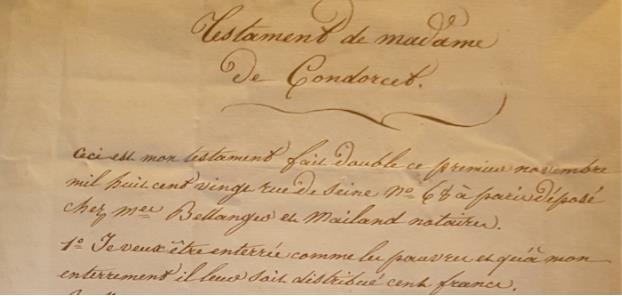 Testament de madame
de Condorcet.
Ceci est mon testament fait double ce premier novembre
mil huit cent vingt rue de seine No. 68 à paris déposé
chez mes Bellanger et Mailand notaires.
1o. Je veux être enterrée comme les pauvres et qu'à mon
enterrement il leur soit distribué cent francs.